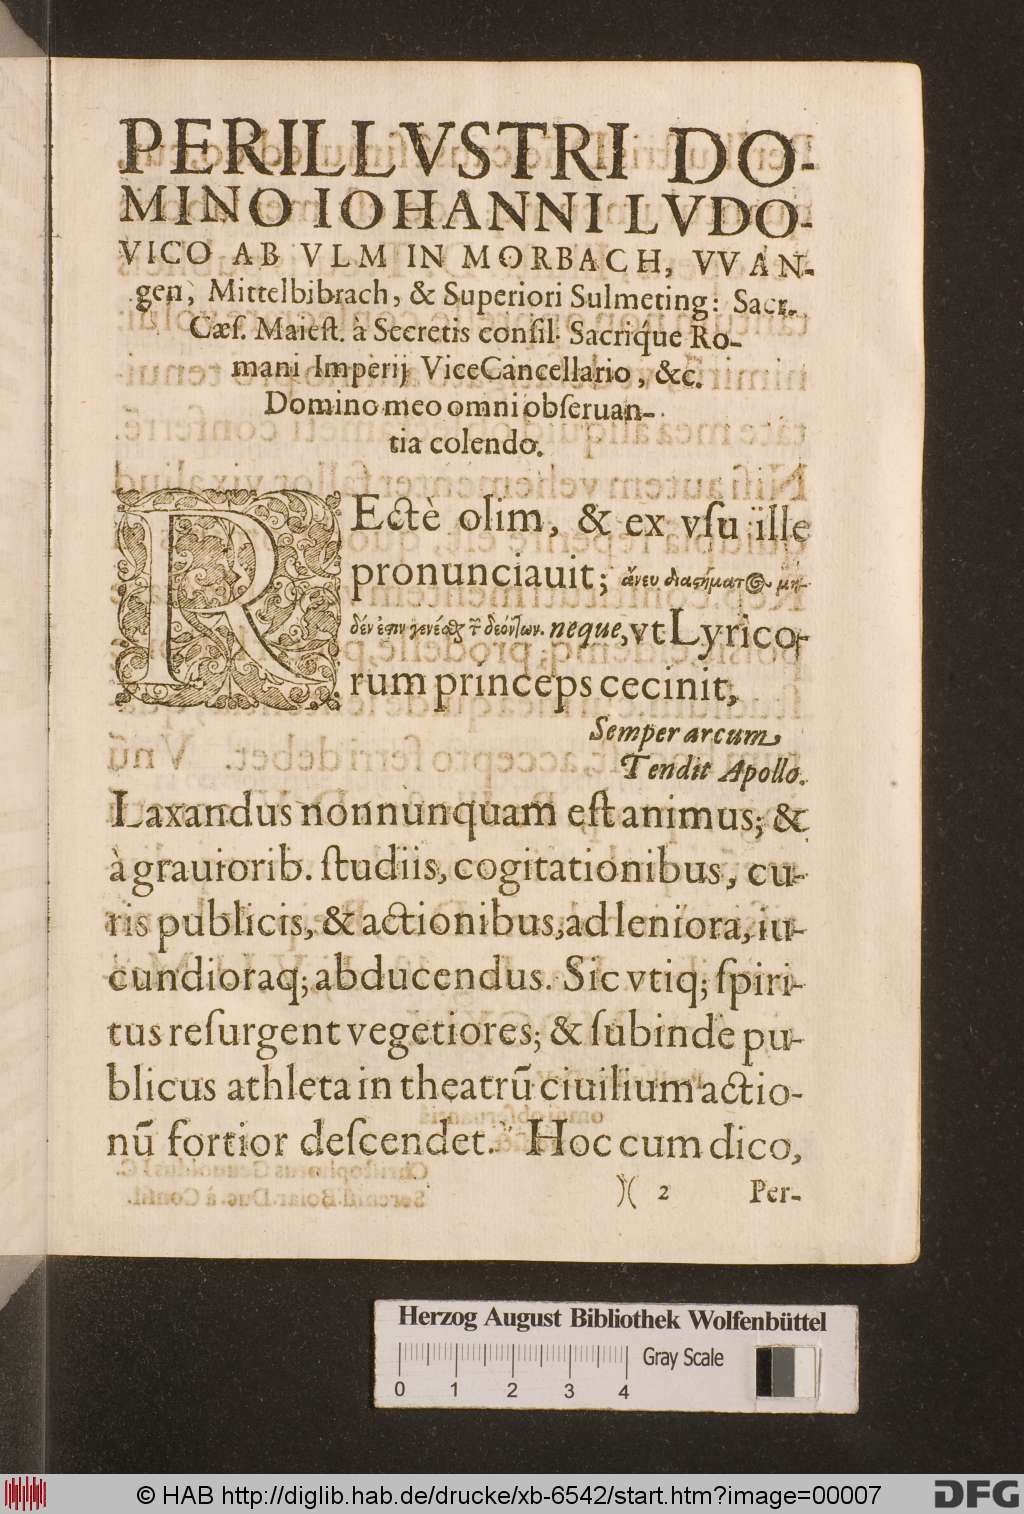 PERILLVSTRI DO-
MINO IOHANNI LVDO-
VICO AB VLM IN MORBACH, VVAN-
gen, Mittelbibrach, & Superiori Sulmeting: Sacr.
Cæſ. Maieſt. à Secretis conſil. Sacriq́ue Ro-
mani Imperij ViceCancellario, &c.
Domino meo omni obſeruan-
tia colendo.
REctè olim, & ex vſu ille
pronunciauit; ἄνευ διαϛήματος μη-
δέν neque, vt Lyrico-
rum princeps cecinit,
Semper arcum
Tendit Apollo.
Laxandus nonnunquam eſt animus; &
à grauiorib. ſtudiis, cogitationibus, cu-
ris publicis, & actionibus, ad leniora, iu-
cundioraq; abducendus. Sic vtiq; ſpiri-
tus reſurgent vegetiores; & ſubinde pu-
blicus athleta in theatrũ ciuilium actio-
nũ fortior deſcendet. Hoc cum dico,
)( 2 Per-
Herzog August Bibliothek Wolfenbüttel
Gray Scale
0 1 2 3 4
© HAB http://diglib.hab.de/drucke/xb-6542/start.htm?image=00007
DFG